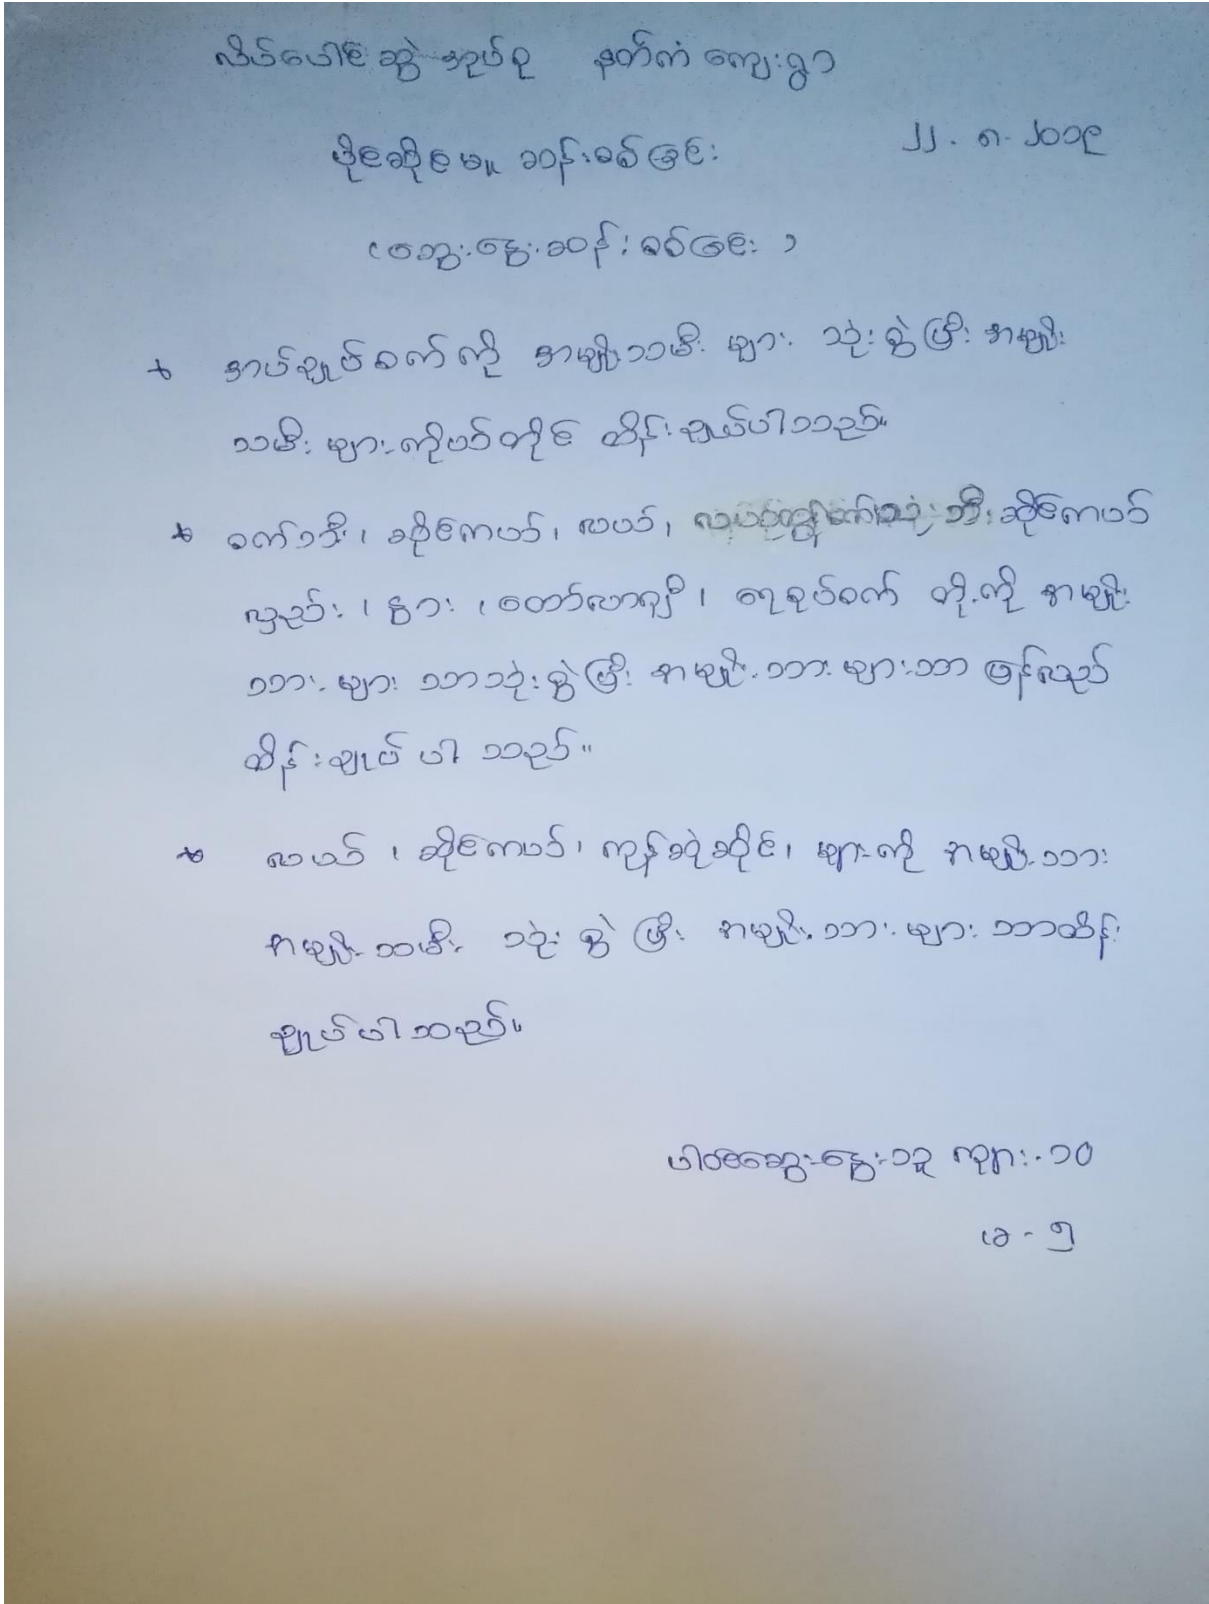 လိပ်ပေါင်ဆွဲ အုပ်စု နတ်ကံ ကျေးရွာ
၂၂.၈.၂၀၁၉
ပိုင်ဆိုင်မှု ဆန်းစစ်ခြင်း
(ဆွေးနွေးဆန်းစစ်ခြင်း)
* အပ်ချုပ်စက်ကို အမျိုးသမီး များ သုံးစွဲပြီး အမျိုး
သမီး များကိုယ်တိုင် ထိန်းချုပ်ပါသည်။
* စက်ဘီး၊ ဆိုင်ကယ်၊ လယ်၊ ဆိုင်ကယ်
လှည်း၊ နွား၊ တော်လာဂျီ၊ ရေစုပ်စက် တို့ကို အမျိုး
သား များ သာသုံးစွဲပြီး အမျိုးသားများသာ ပြန်လည်
ထိန်းချုပ် ပါ သည်။
* လယ်၊ ဆိုင်ကယ်၊ ကုန်စုံဆိုင်၊ များကို အမျိုးသား
အမျိုးသမီး သုံးစွဲပြီး အမျိုးသားများ သာထိန်း
ချုပ်ပါသည်။
ပါဝင်ဆွေးနွေးသူ ကျား-၁၀
မ-၅